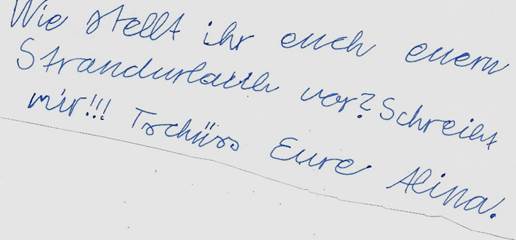 Wie stellt ihr euch euern
Strandurlaub vor? Schreibt
mir!!! Tschüss Eure Alina.